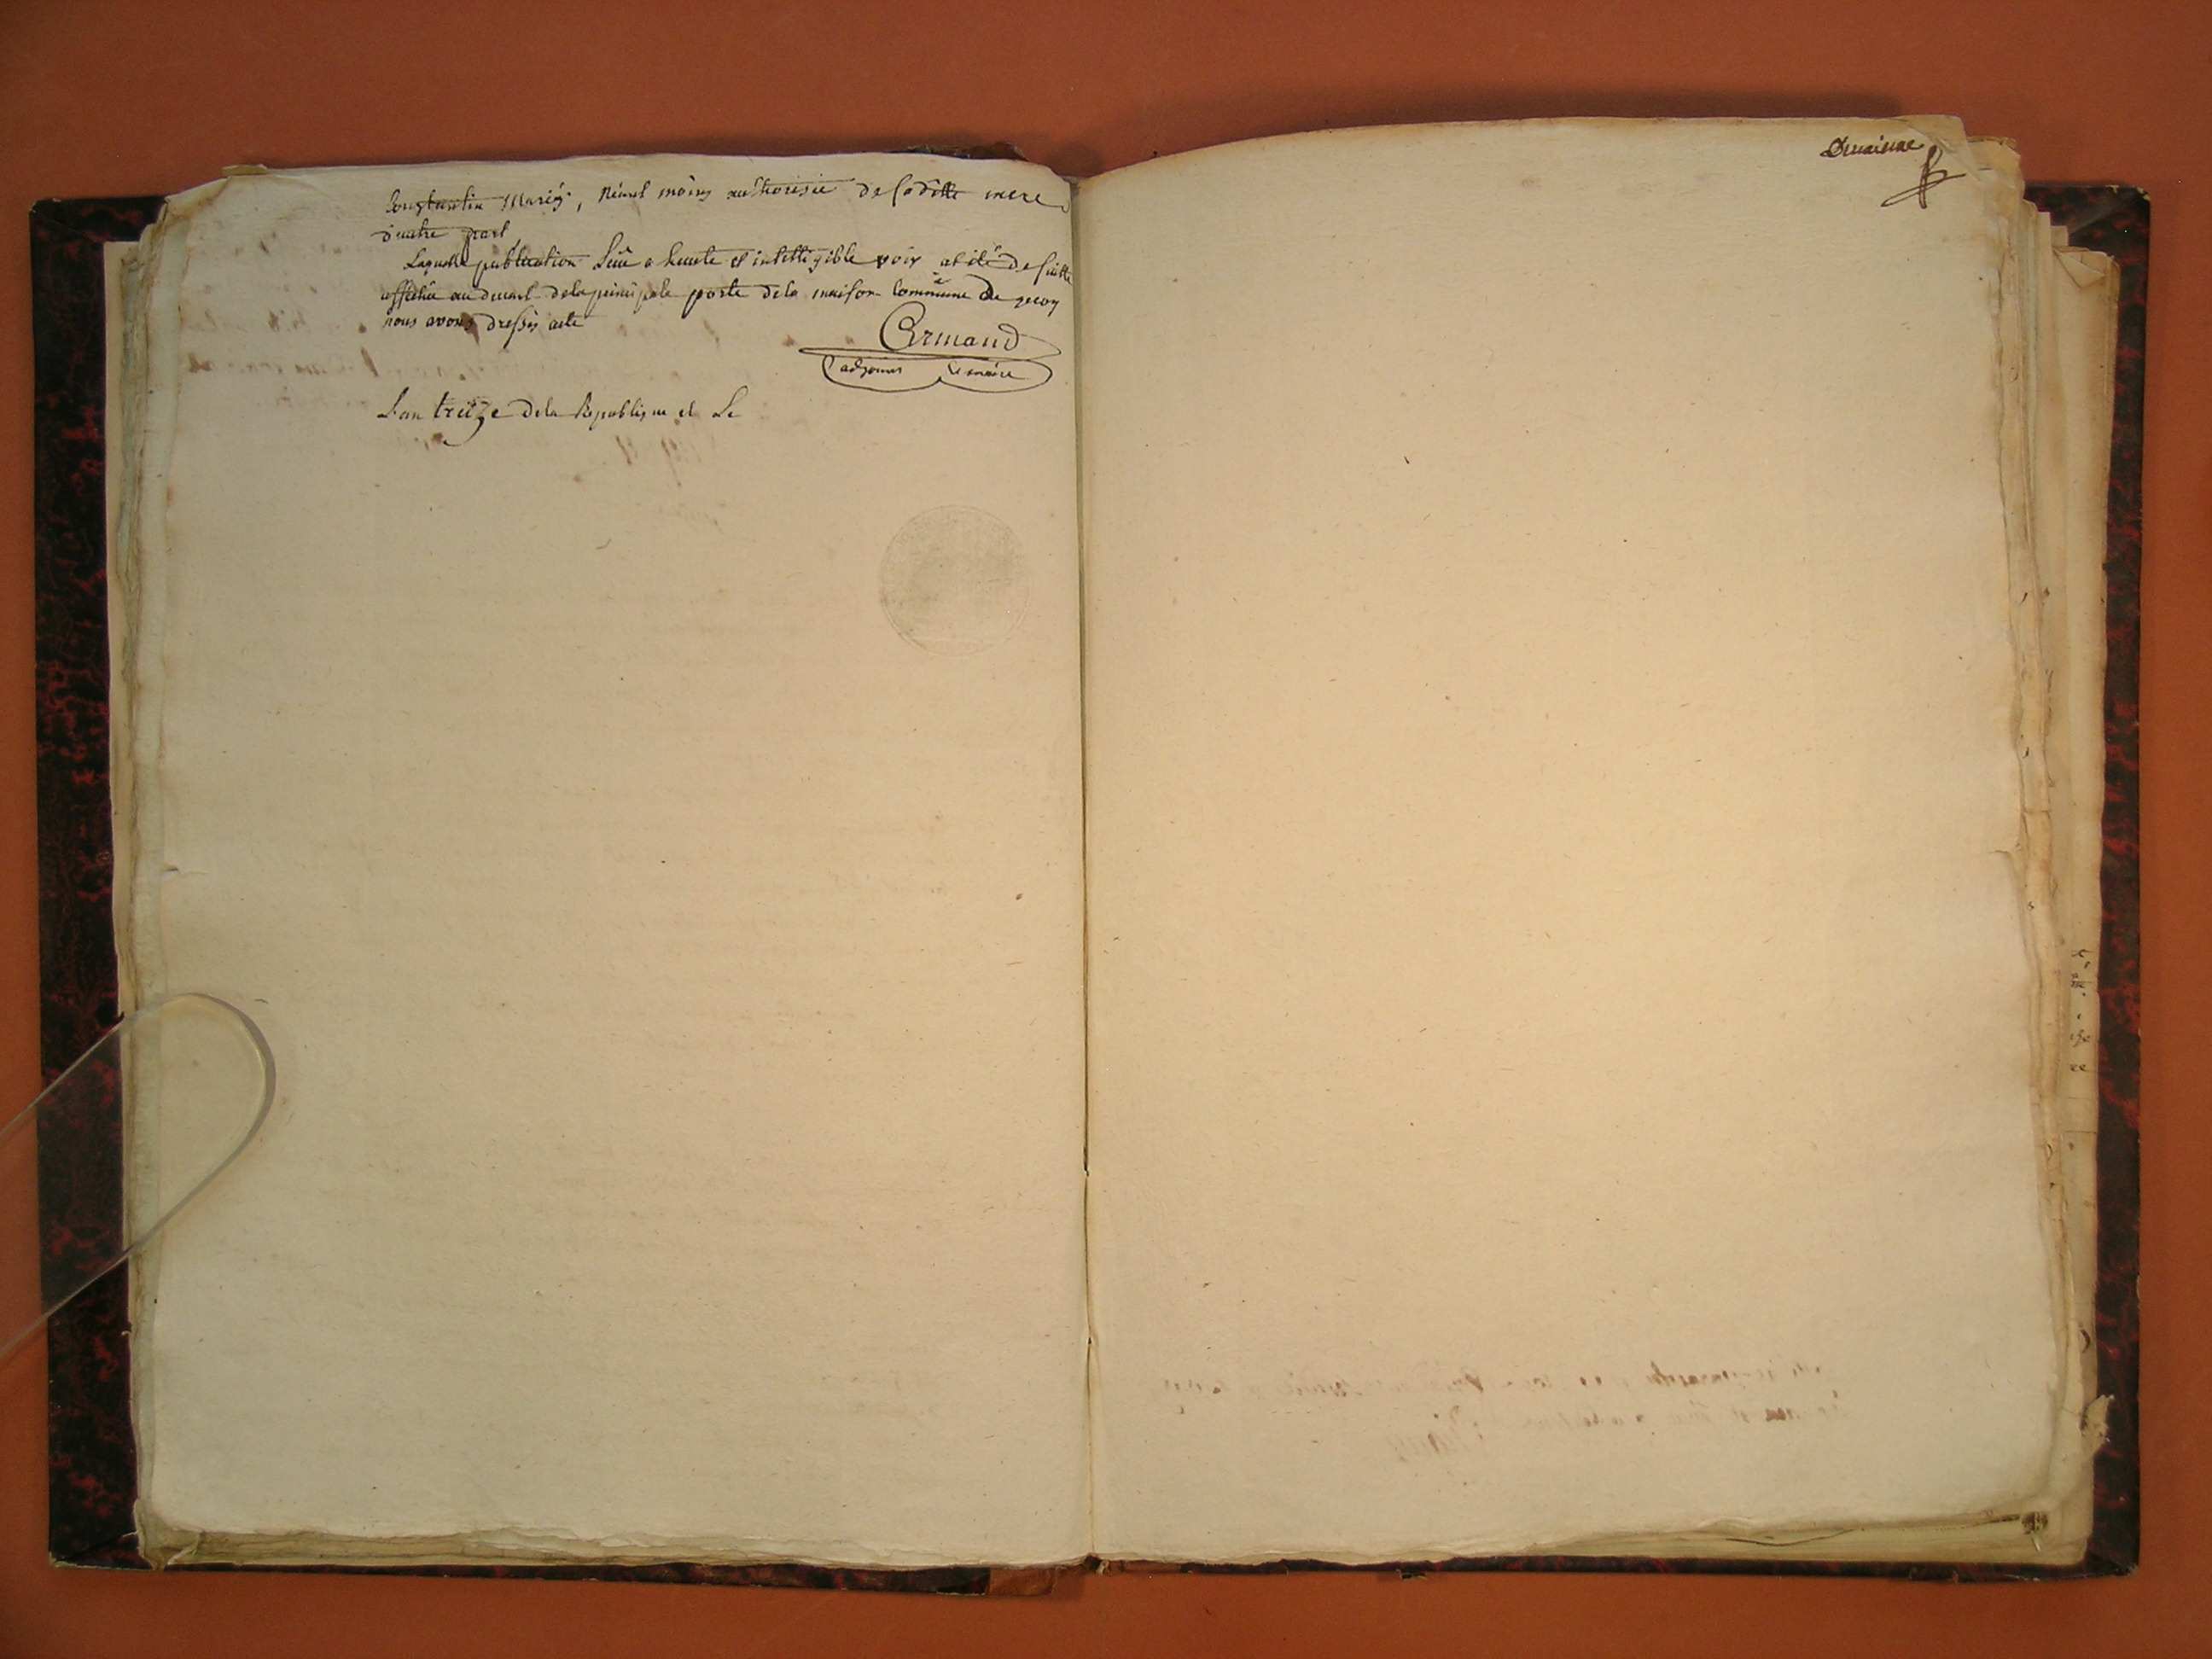 Constantin Mariés, néant moins authorisée de saditte mere
d'autre part
Laquelle publication Luë a haute et intelligible voix at été de suitte
affichée au devant de la principale porte de la maison commune de quoy
nous avons dressés acte
Armand
adjoint Le maire
L'an treize de la Republique et Le
Deuxieme